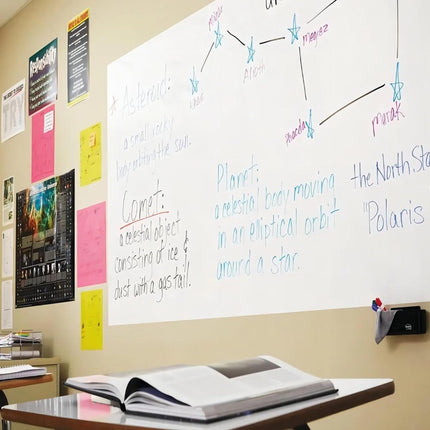 megrez
Alioth
merak
Asteroid:
a small rocky
body orbiting the sun.
Comet:
a celestial object
consisting of ice &
dust with a gas tail!
Planet:
a celestial body moving
in an elliptical orbit
around a star.
the North Sta
"Polaris
Responsibility
TRY